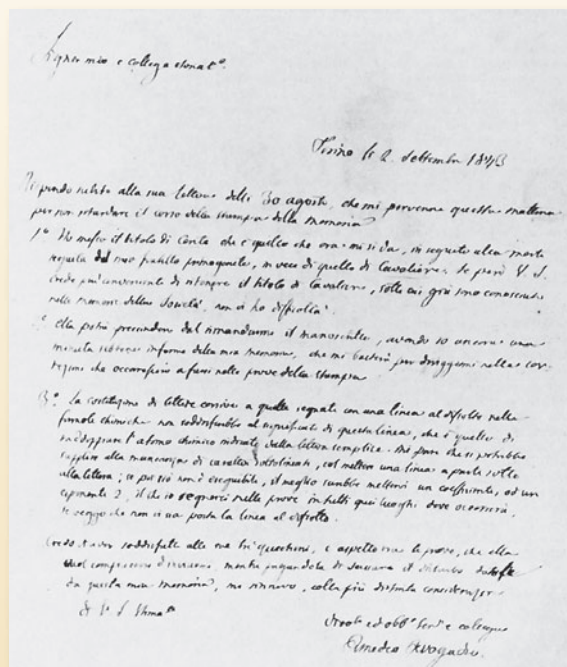 Signor mio e collega stimat.º
Torino li 2. settembre 1843
Rispondo subito alla sua lettera delli 30 agosto, che mi pervenne questa mattina
per non ritardare il corso della stampa della memoria
1º Ho messo il titolo di Conte che è quello che ora mi si dà, in seguito alla morte
seguita del mio fratello primogenito, in vece di quello di Cavaliere. Se però V. S.
crede più conveniente di ritenere il titolo di Cavaliere, sotto cui già sono conosciuto
nelle memorie della Società, non vi ho difficoltà.
2º Ella potrà prescindere dal rimandarmi il manoscritto, avendo io ancora una
minuta informe della mia memoria, che mi basterà per dirigermi nelle cor-
rezioni che occorressero a farsi nelle prove della stampa
3º La sostituzione di lettere corsive a quelle segnate con una linea al disotto nelle
formole chimiche non soddisfarebbe al significato di questa linea, che è quello di
raddoppiare l'atomo chimico indicato dalla lettera semplice. Mi pare che si potrebbe
supplire alla mancanza di caratteri sottolineati, col mettere una linea a parte sotto
alla lettera; se poi ciò non è eseguibile, il meglio sarebbe mettervi un coefficiente, od un
esponente 2, il che io segnerei nelle prove in tutti quei luoghi dove occorrerà,
se veggo che non si va posta la linea al disotto.
Credo d'aver soddisfatto alle sue tre questioni, e aspetto ora le prove, che ella
vuol compiacersi d'inviarmi, mentre pregandola di scusare il disturbo
da questa mia memoria, me rinnovo, colla più distinta considerazione
di V. S. Stimat.ª
Amedeo Avogadro